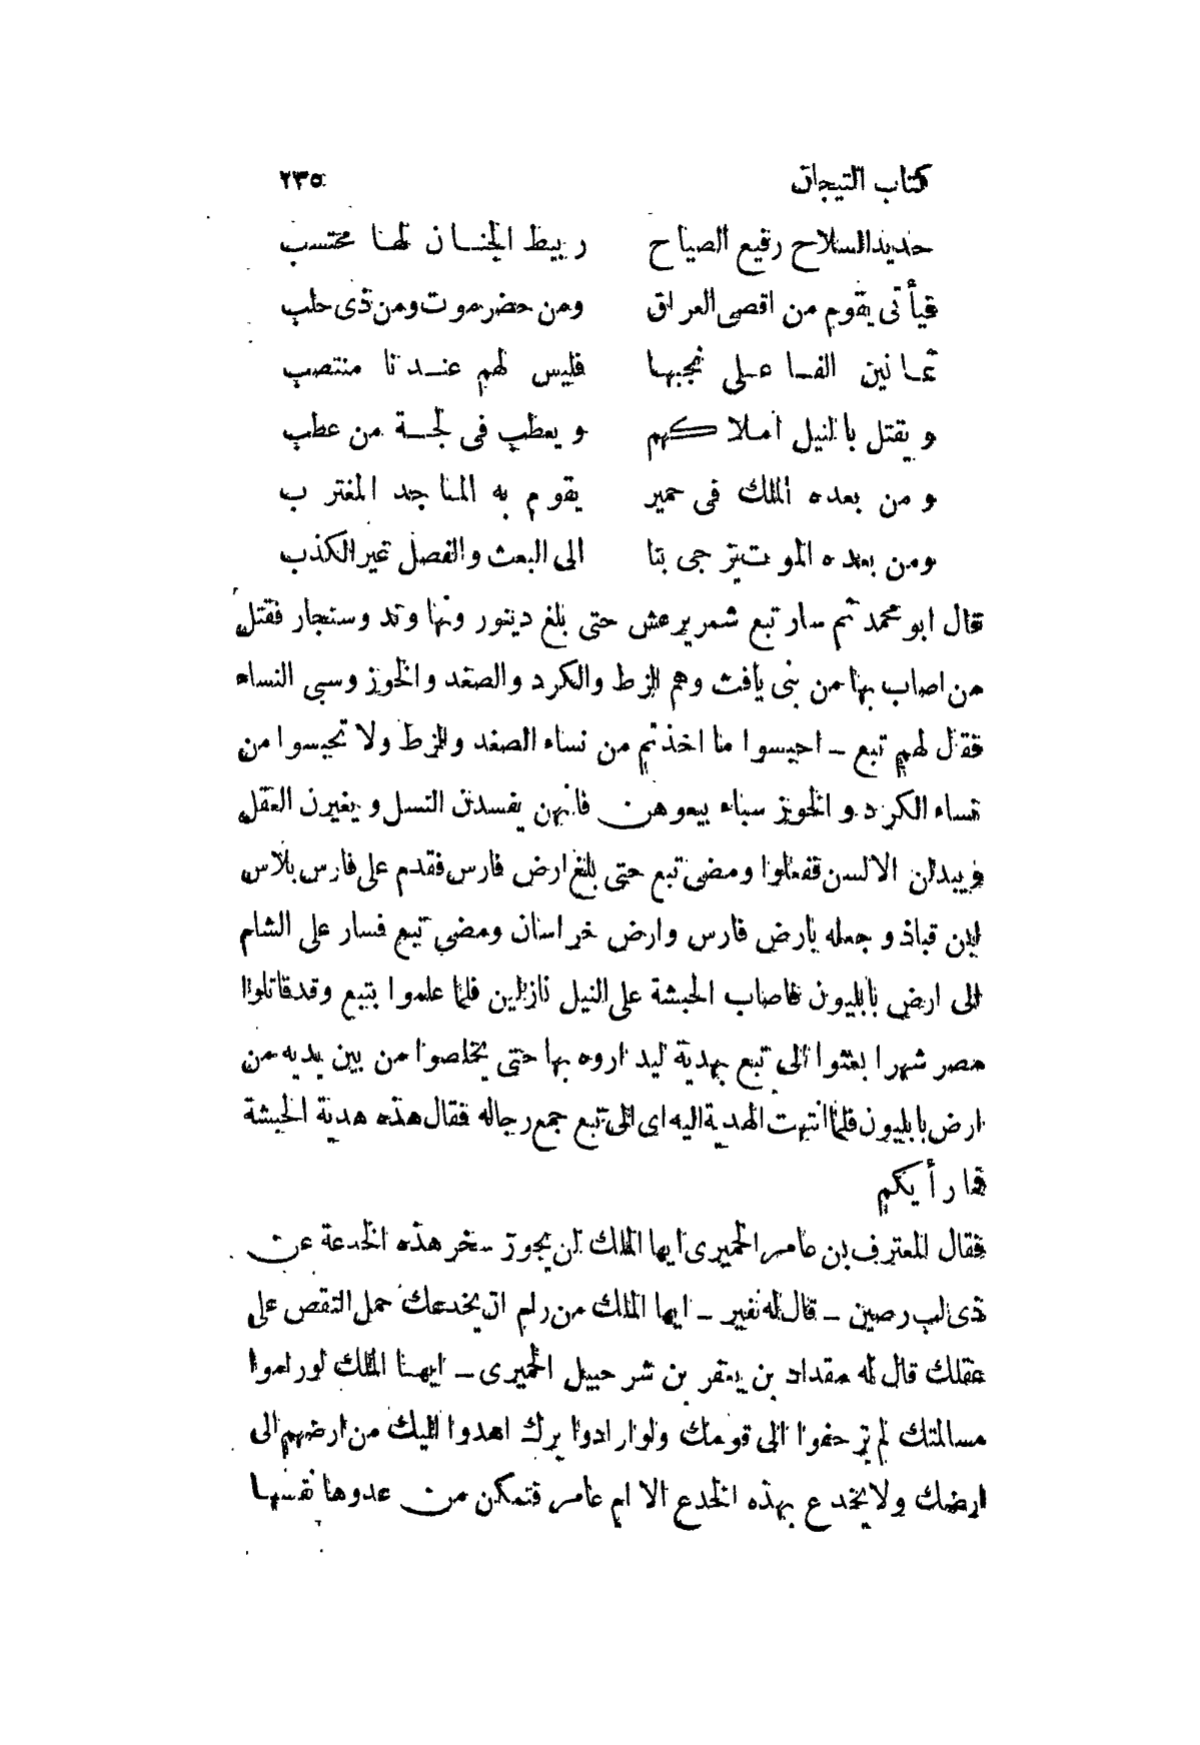 كتاب التيجان ٢٣٥
حديد السلاح رفيع الصياح ربيط الجنان لها محتسب
فيأتى بقوم من اقصى العراق ومن حضر موت ومن ذى حلب
ثمانين الفا على نجبها فليس لهم عندنا منتصب
ويقتل بالنيل املاكهم ويعطب فى لجة من عطب
ومن بعده الملك فى حمير يقوم به الماجد المغترب
ومن بعده الموت يزجى بنا الى البعث والفصل غير الكذب
قال ابو محمد ثم سار تبع شمر يرعش حتى بلغ دينور ونهاوند وسنجار فقتل
من اصاب بها من بنى يافث وهم الزط والكرد والصغد والخوز وسبى النساء
فقال لهم تبع ـ احبسوا ما اخذتم من نساء الصغد والزط ولا تحبسوا من
نساء الكرد و الخوز سباء بيعوهن فانهن يفسدن النسل ويغيرن العقل
ويبدلن الالسن ففعلوا ومضى تبع حتى بلغ ارض فارس فقدم على فارس بلاس
ابن قباذ وجعله بارض فارس وارض خراسان ومضى تبع فسار على الشام
الى ارض بابليون فاصاب الحبشة على النيل نازلين فلما علموا بتبع وقد قاتلوا
مصر شهرا بعثوا الى تبع بهدية ليداروه بها حتى يخلصوا من بين يديه من
ارض بابليون فلما انتهت الهدية اليه اى الى تبع جمع رجاله فقال هذه هدية الحبشة
فما رأيكم
فقال المعترف بن عامر الحميرى ايها الملك لن يجوز سخر هذه الخدعة عن
ذى لب رصين ـ قال له نفير ـ ايها الملك من رام ان يخدعك حمل النقص على
عقلك قال له مقداد بن يعفر بن شرحبيل الحميرى ـ ايها الملك لو راموا
مسالمتك لم يزحفوا الى قومك ولو ارادوا برك اهدوا اليك من ارضهم الى
ارضك ولا يخدع بهذه الخدع الا ام عامر فتمكن من عدوها نفسها